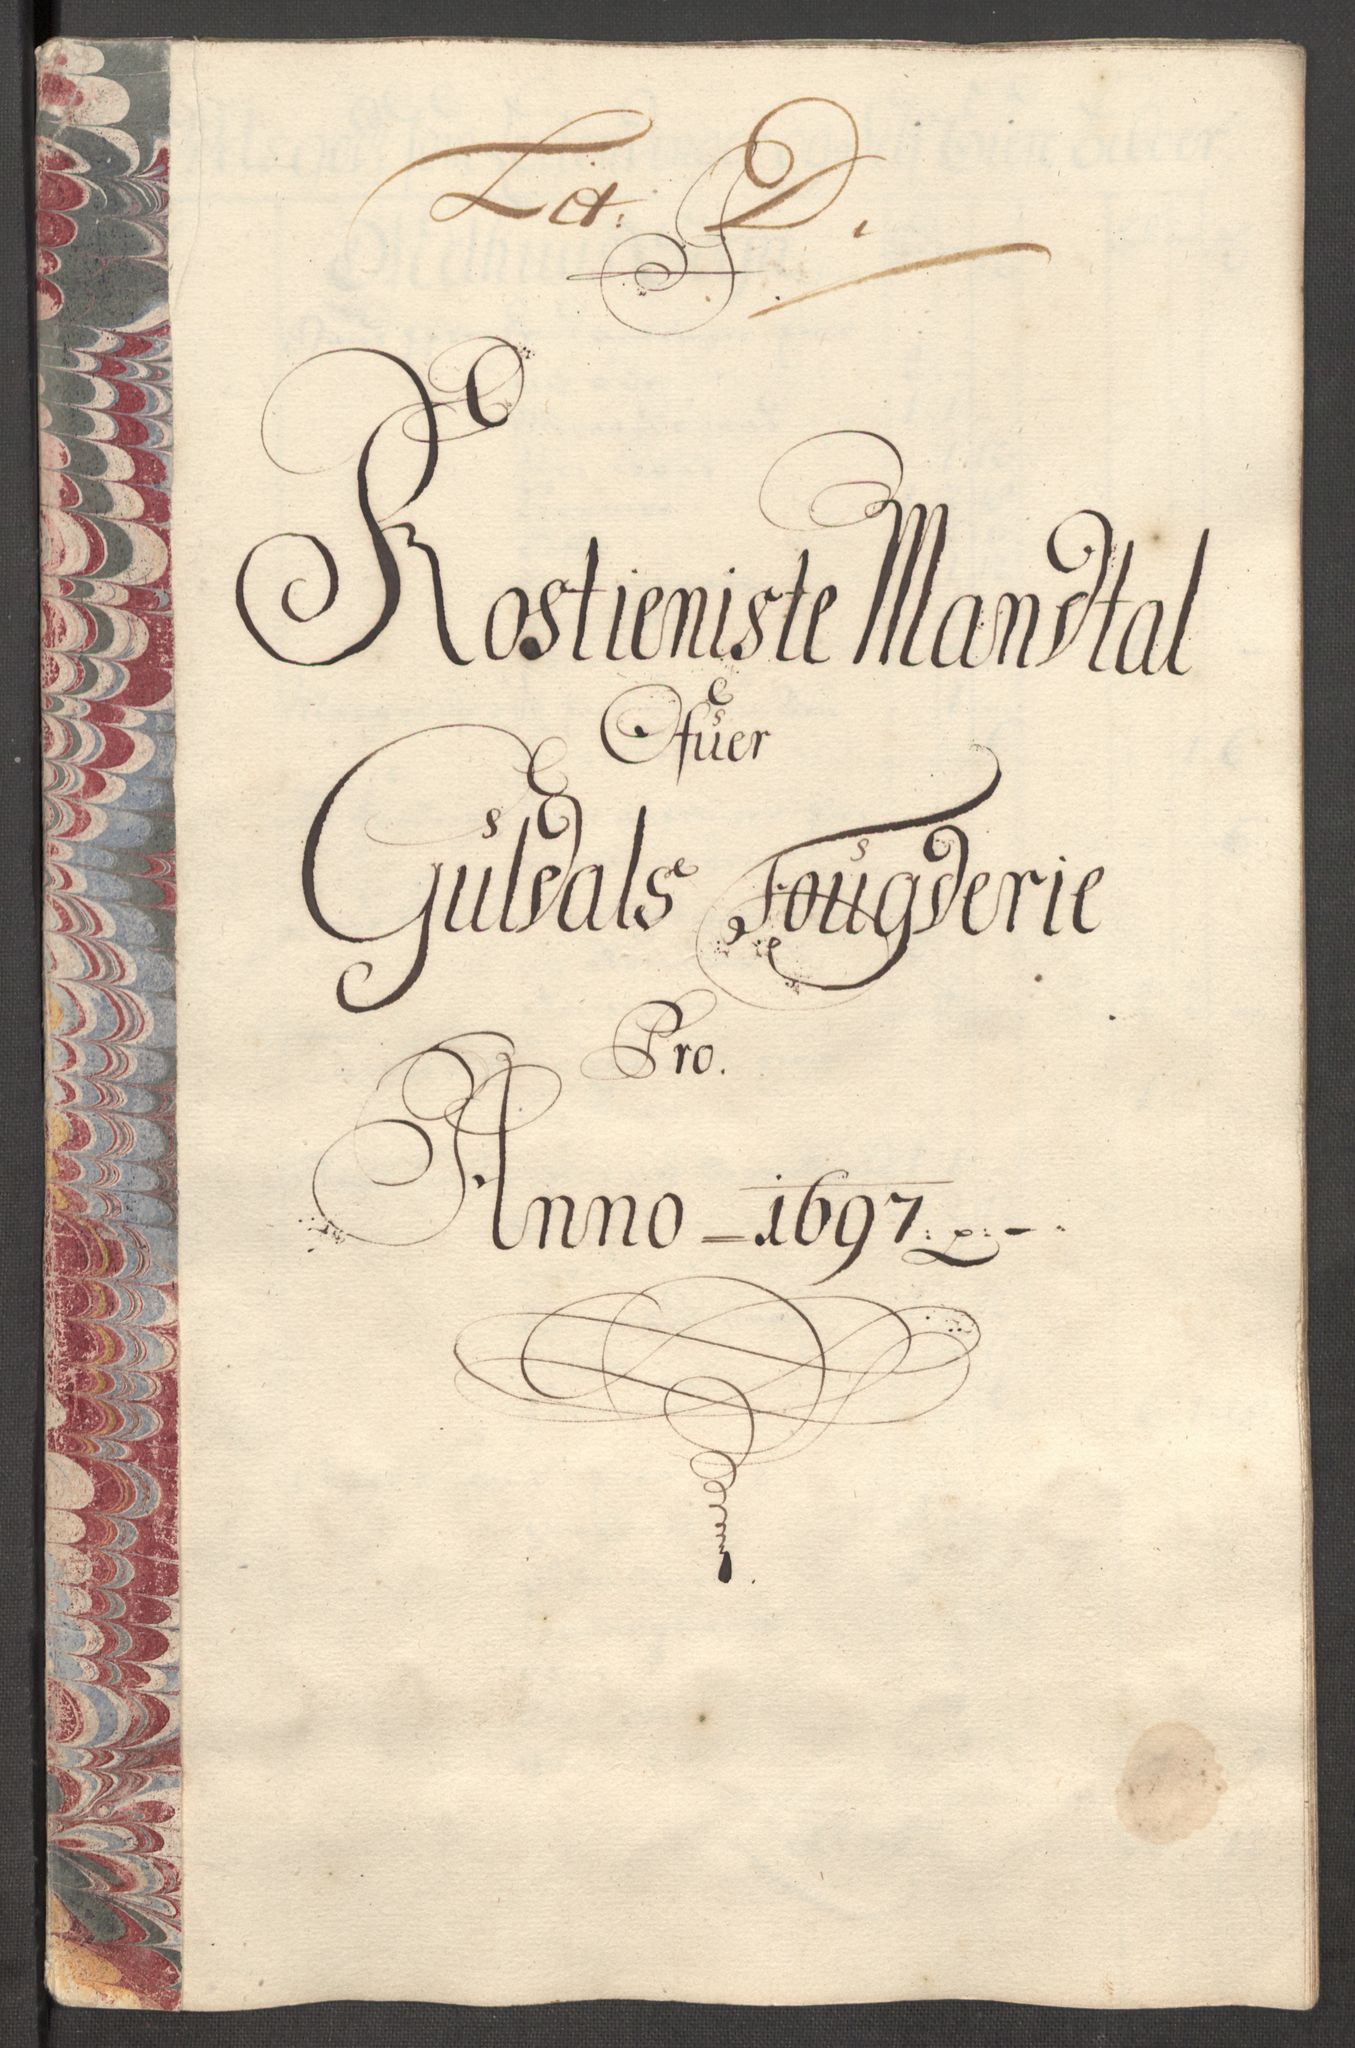 Lit. D.
Rostieniste Mandtal
Ofuer
Guldals Fougderie
Pro.
Anno 1697.